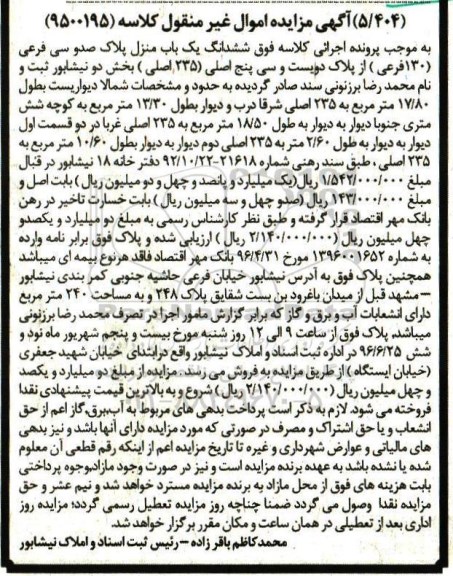 (۵/۴۰۴) آگهی مزایده اموال غیر منقول کلاسه (۹۵۰۰۱۹۵)
به موجب پرونده اجرائی کلاسه فوق ششدانگ یک باب منزل پلاک صدو سی فرعی
(۱۳۰فرعی ) از پلاک دویست و سی پنج اصلی (۲۳۵ اصلی ) بخش دو نیشابور ثبت و
نام محمد رضا برزنونی سند صادر گردیده به حدود و مشخصات شمالا دیواریست بطول
۱۷/۸۰ متر مربع به ۲۳۵ اصلی شرقا درب و دیوار بطول ۱۳/۳۰ متر مربع به کوچه شش
متری جنوبا دیوار به دیوار به طول ۱۸/۵۰ متر مربع به ۲۳۵ اصلی غربا در دو قسمت اول
دیوار به دیوار به طول ۲/۶۰ متر به ۲۳۵ اصلی دوم دیوار به دیوار بطول ۱۰/۶۰ متر مربع به
۲۳۵ اصلی ، طبق سند رهنی شماره ۲۱۶۱۸-۹۲/۱۰/۲۲ دفتر خانه ۱۸ نیشابور در قبال
مبلغ ۱/۵۴۲/۰۰۰/۰۰۰ ریال(یک میلیارد و پانصد و چهل و دو میلیون ریال ) بابت اصل و
مبلغ ۱۴۳/۰۰۰/۰۰۰ ریال (صدو چهل و سه میلیون ریال ) بابت خسارت تاخیر در رهن
بانک مهر اقتصاد قرار گرفته و طبق نظر کارشناس رسمی به مبلغ دو میلیارد و یکصدو
چهل میلیون ریال (۲/۱۴۰/۰۰۰/۰۰۰ ریال ) ارزیابی شده و پلاک فوق برابر نامه وارده
به شماره ۱۳۹۶۰۰۱۶۵۲ مورخ ۹۶/۴/۳۱ بانک مهر اقتصاد فاقد هرنوع بیمه ای میباشد
همچنین پلاک فوق به آدرس نیشابور خیابان فرعی حاشیه جنوبی کمر بندی نیشابور
– مشهد قبل از میدان باغرود بن بست شقایق پلاک ۲۴۸ و به مساحت ۲۴۰ متر مربع
دارای انشعابات آب و برق و گاز که برابر گزارش مامور اجرا در تصرف محمد رضا برزنونی
میباشد، پلاک فوق از ساعت ۹ الی ۱۲ روز شنبه مورخ بیست و پنجم شهریور ماه نود و
شش ۹۶/۶/۲۵ در اداره ثبت اسناد و املاک نیشابور واقع درابتدای خیابان شهید جعفری
(خیابان ایستگاه ) از طریق مزایده به فروش می رسد. مزایده از مبلغ دو میلیارد و یکصد
و چهل میلیون ریال (۲/۱۴۰/۰۰۰/۰۰۰ ریال ) شروع و به بالاترین قیمت پیشنهادی نقدا
فروخته می شود. لازم به ذکر است پرداخت بدهی های مربوط به آب،برق،گاز اعم از حق
انشعاب و یا حق اشتراک و مصرف در صورتی که مورد مزایده دارای آنها باشد و نیز بدهی
های مالیاتی و عوارض شهرداری و غیره تا تاریخ مزایده اعم از اینکه رقم قطعی آن معلوم
شده یا نشده باشد به عهده برنده مزایده است و نیز در صورت وجود مازاد،وجوه پرداختی
بابت هزینه های فوق از محل مازاد به برنده مزایده مسترد خواهد شد و نیم عشر و حق
مزایده نقدا وصول می گردد ضمنا چناچه روز مزایده تعطیل رسمی گردد؛ مزایده روز
اداری بعد از تعطیلی در همان ساعت و مکان مقرر برگزار خواهد شد.
محمدکاظم باقر زاده – رئیس ثبت اسناد و املاک نیشابور